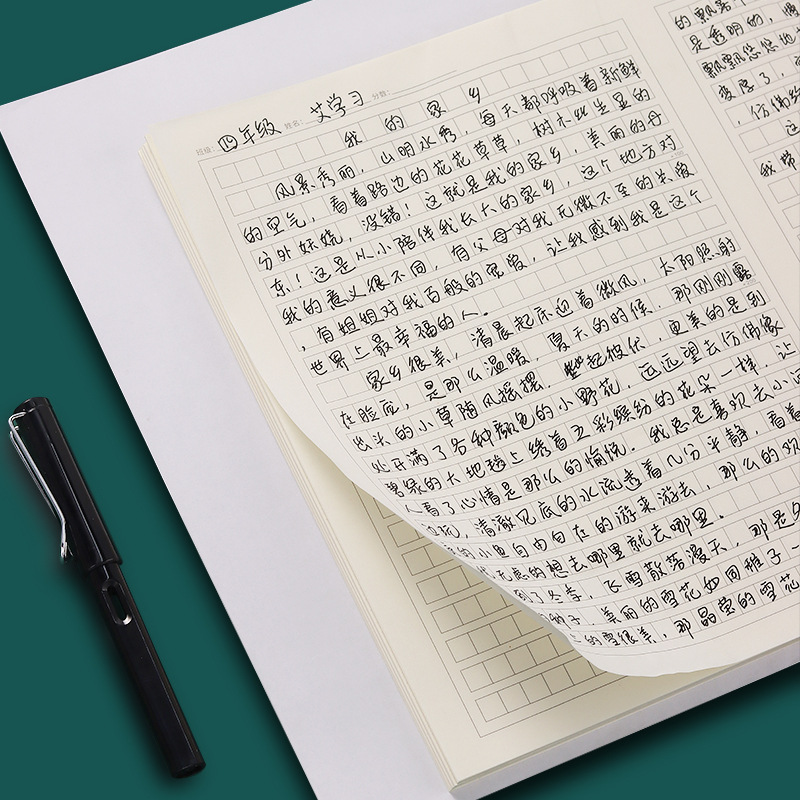 班级：四年级 姓名：艾学习 分数：
我的家乡
风景秀丽，山明水秀，每天都呼吸着新鲜
的空气，看着路边的花花草草，树木些生显的
分外妖娆，没错！这就是我的家乡，美丽的丹
东！这是从小陪伴我长大的家乡，这个地方对
我的意义很不同，有父母对我无微不至的关爱
，有姐姐对我百般的宠爱，让我感到我是这个
世界上最幸福的人。
家乡很美，清晨起床迎着微风，太阳照射
在脸庞，是那么温暖，夏天的时候，那刚刚露
出头的小草随风摇摆，此起彼伏，更美的是到
处开满了各种颜色的小野花，远远望去仿佛像
碧绿的大地毯上绣着五彩缤纷的花朵一样，让
人看了心情是那么的愉悦。我总是喜欢去小河
边玩，清澈见底的水流透着几分平静，看着
的小鱼自由自在的游来游去，那么的欢
无虑的想去哪里就去哪里。
到了冬季，飞雪散落漫天，那是冬
种子，美丽的雪花如同稚子一
的雪很美，那晶莹的雪花
的飘落
是透明的，
飘飘悠悠
变厚了，
，仿佛
这
我带